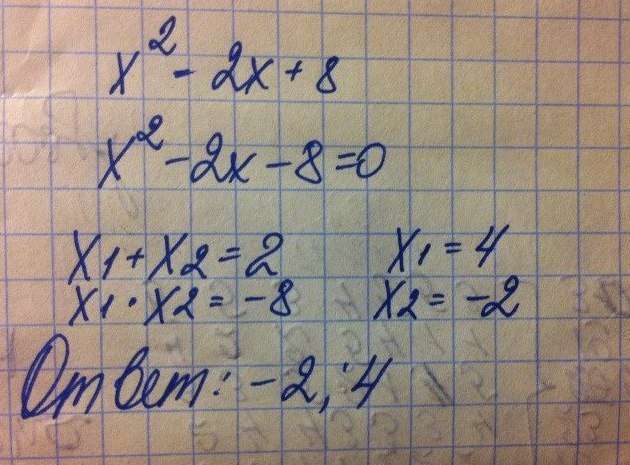 x² - 2x + 8
x² - 2x - 8 = 0
x1 + x2 = 2 x1 = 4
x1 · x2 = -8 x2 = -2
Ответ: -2; 4